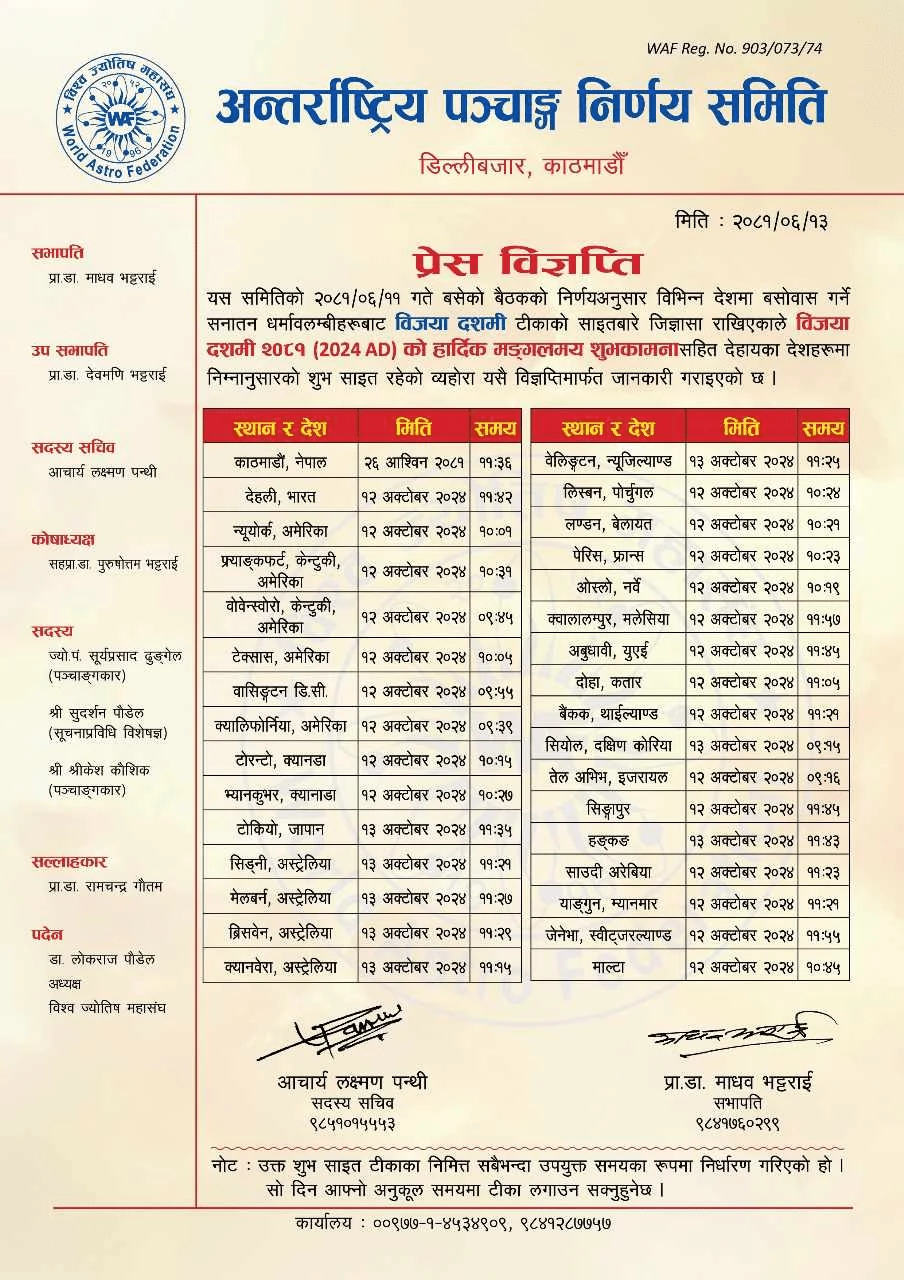 WAF Reg. No. 903/073/74
विश्व ज्योतिष महासंघ
२०५२
WAF
1996
World Astro Federation
अन्तर्राष्ट्रिय पञ्चाङ्ग निर्णय समिति
डिल्लीबजार, काठमाडौँ
मिति : २०८१/०६/१३
सभापति
प्रा.डा. माधव भट्टराई
उप सभापति
प्रा.डा. देवमणि भट्टराई
सदस्य सचिव
आचार्य लक्ष्मण पन्थी
कोषाध्यक्ष
सहप्रा.डा. पुरुषोत्तम भट्टराई
सदस्य
ज्यो.पं. सूर्यप्रसाद ढुङ्गेल
(पञ्चाङ्गकार)
श्री सुदर्शन पौडेल
(सूचनाप्रविधि विशेषज्ञ)
श्री श्रीकेश कौशिक
(पञ्चाङ्गकार)
सल्लाहकार
प्रा.डा. रामचन्द्र गौतम
पदेन
डा. लोकराज पौडेल
अध्यक्ष
विश्व ज्योतिष महासंघ
प्रेस विज्ञप्ति
यस समितिको २०८१/०६/११ गते बसेको बैठकको निर्णयअनुसार विभिन्न देशमा बसोवास गर्ने
सनातन धर्मावलम्बीहरूबाट विजया दशमी टीकाको साइतबारे जिज्ञासा राखिएकाले विजया
दशमी २०८१ (2024 AD) को हार्दिक मङ्गलमय शुभकामनासहित देहायका देशहरूमा
निम्नानुसारको शुभ साइत रहेको व्यहोरा यसै विज्ञप्तिमार्फत जानकारी गराइएको छ ।
स्थान र देश मिति समय
काठमाडौं, नेपाल २६ आश्विन २०८१ ११:३६
देहली, भारत १२ अक्टोबर २०२४ ११:४२
न्यूयोर्क, अमेरिका १२ अक्टोबर २०२४ १०:०१
फ्र्याङ्कफर्ट, केन्टुकी,
अमेरिका १२ अक्टोबर २०२४ १०:३१
वोवेन्स्वोरो, केन्टुकी,
अमेरिका १२ अक्टोबर २०२४ ०९:४५
टेक्सास, अमेरिका १२ अक्टोबर २०२४ १०:०५
वासिङ्टन डि.सी. १२ अक्टोबर २०२४ ०९:५५
क्यालिफोर्निया, अमेरिका १२ अक्टोबर २०२४ ०९:३९
टोरन्टो, क्यानडा १२ अक्टोबर २०२४ १०:१५
भ्यानकुभर, क्यानाडा १२ अक्टोबर २०२४ १०:२७
टोकियो, जापान १३ अक्टोबर २०२४ ११:३५
सिड्नी, अस्ट्रेलिया १३ अक्टोबर २०२४ ११:२१
मेलबर्न, अस्ट्रेलिया १३ अक्टोबर २०२४ ११:२७
ब्रिसवेन, अस्ट्रेलिया १३ अक्टोबर २०२४ ११:२९
क्यानवेरा, अस्ट्रेलिया १३ अक्टोबर २०२४ ११:१५
स्थान र देश मिति समय
वेलिङ्टन, न्यूजिल्याण्ड १३ अक्टोबर २०२४ ११:२५
लिस्बन, पोर्चुगल १२ अक्टोबर २०२४ १०:२४
लण्डन, बेलायत १२ अक्टोबर २०२४ १०:२१
पेरिस, फ्रान्स १२ अक्टोबर २०२४ १०:२३
ओस्लो, नर्वे १२ अक्टोबर २०२४ १०:१९
क्वालालम्पुर, मलेसिया १२ अक्टोबर २०२४ ११:५७
अबुधावी, युएई १२ अक्टोबर २०२४ ११:४५
दोहा, कतार १२ अक्टोबर २०२४ ११:०५
बैंकक, थाईल्याण्ड १२ अक्टोबर २०२४ ११:२१
सियोल, दक्षिण कोरिया १३ अक्टोबर २०२४ ०९:१५
तेल अभिभ, इजरायल १२ अक्टोबर २०२४ ०९:१६
सिङ्गापुर १२ अक्टोबर २०२४ ११:४५
हङ्कङ १३ अक्टोबर २०२४ ११:४३
साउदी अरेबिया १२ अक्टोबर २०२४ ११:२३
याङ्गुन, म्यानमार १२ अक्टोबर २०२४ ११:२१
जेनेभा, स्वीट्जरल्याण्ड १२ अक्टोबर २०२४ ११:५५
माल्टा १२ अक्टोबर २०२४ १०:४५
आचार्य लक्ष्मण पन्थी
सदस्य सचिव
९८५१०१५५५३
प्रा.डा. माधव भट्टराई
सभापति
९८४१७६०२९९
नोट : उक्त शुभ साइत टीकाका निमित्त सबैभन्दा उपयुक्त समयका रूपमा निर्धारण गरिएको हो ।
सो दिन आफ्नो अनुकूल समयमा टीका लगाउन सक्नुहुनेछ ।
कार्यालय : ००९७७-१-४५३४९०९, ९८४१२८७७५७